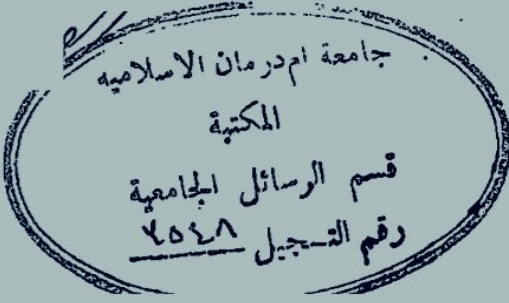 جامعة ام درمان الاسلاميه
المكتبة
قسم الرسائل الجامعية
رقم التسجيل ٢٥٤٨